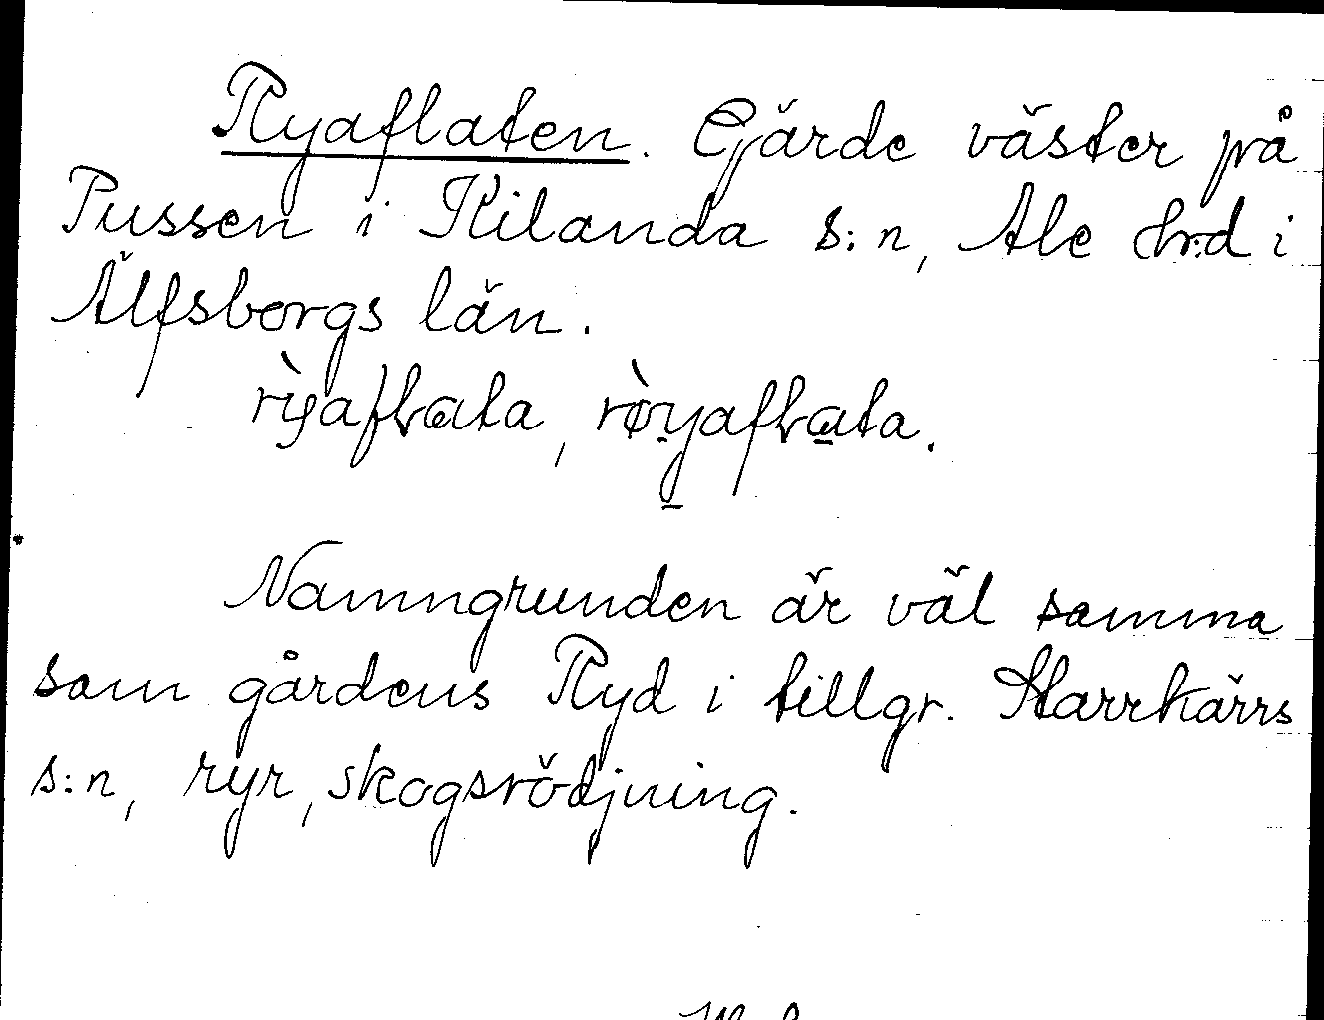 Ryaflaten. Gjärde väster på
Pussen i Kilanda s:n, Ale hrd i
Älfsborgs län.
rỳaflata, rø̀yaflata.
Namngrunden är väl samma
som gårdens Ryd i tillgr. Starrkärrs
s:n, ryr, skogsrödjning.